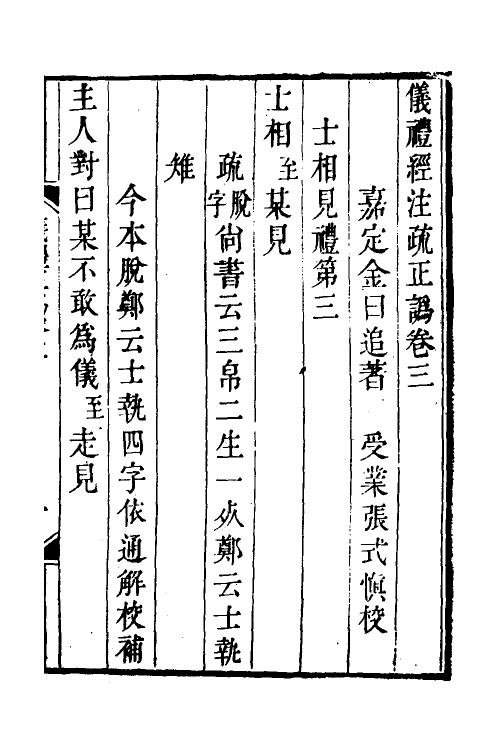 儀禮經注疏正譌卷三
嘉定金曰追著　受業張式慎校
士相見禮第三
士相至某見
疏脫字尙書云三帛二生一死鄭云士執
雉
今本脫鄭云士執四字依通解校補
主人對曰某不敢為儀至走見